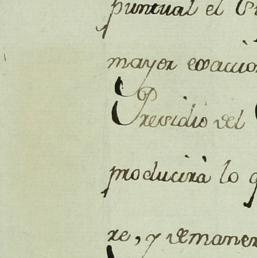 puntual el
mayor exaccio
Presidio del
producirà lo
re, y demaner